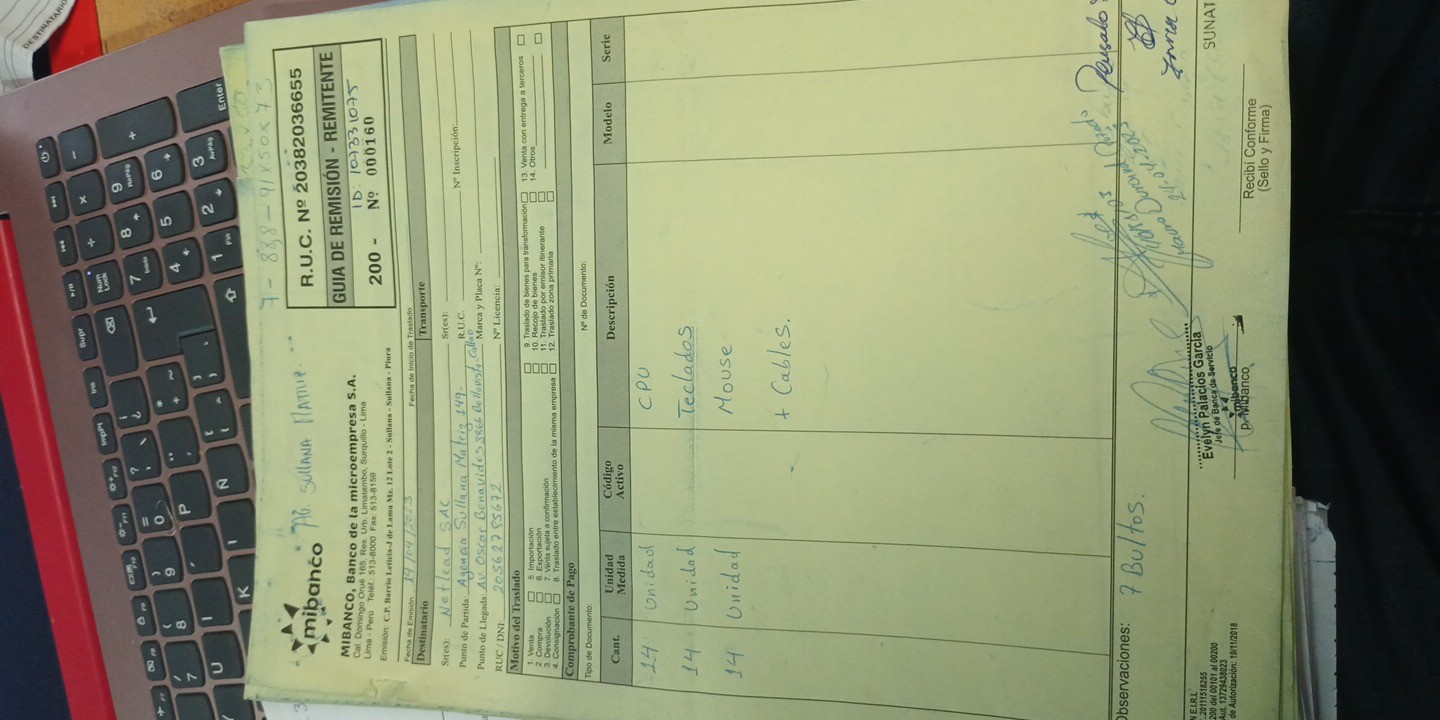 7 - 838 - 91X50X73
AG. SULLANA MATRIZ
mibanco
MIBANCO, Banco de la microempresa S.A.
Cal. Domingo Orué 165, Res. Urb. Limatambo, Surquillo - Lima
Lima - Perú Teléf.: 513-8000 Fax: 513-8159
Emisión: C.P. Barrio Leticia-J de Lama Mz. 12 Lote 2 - Sullana - Sullana - Piura
R.U.C. Nº 20382036655
GUIA DE REMISIÓN - REMITENTE
ID: 107331075
200 - Nº 000160
Fecha de Emisión:
Fecha de Inicio de Traslado:
Destinatario
Transporte
Sr(es): Netlead SAC
Sr(es):
Punto de Partida: Agencia Sullana Matriz 149-
R.U.C.
Nº Inscripción:
Punto de Llegada: AV. Oscar Benavides 3866 Bellavista-Callao
Marca y Placa Nº:
RUC / DNI: 20562785672
Nº Licencia:
Motivo del Traslado
1. Venta
2. Compra
3. Devolución
4. Consignación
5. Importación
6. Exportación
7. Venta sujeta a confirmación
8. Traslado entre establecimiento de la misma empresa
9. Traslado de bienes para transformación
10. Recojo de bienes
11. Traslado por emisor itinerante
12. Traslado zona primaria
13. Venta con entrega a terceros
14. Otros
Comprobante de Pago
Tipo de Documento:
Nº de Documento:
Cant.
Unidad Medida
Código Activo
Descripción
Modelo
Serie
14 Unidad CPU
14 Unidad Teclados
14 Unidad Mouse
+ Cables.
Observaciones: 7 Bultos.
Evelyn Palacios García
Jefe de Banca de Servicio
Mibanco
p. Mibanco
Recibí Conforme
(Sello y Firma)
SUNAT
N E.I.R.L
.20111518255
200 del 00101 al 00200
Aut. 13729438023
de Autorización: 19/11/2018
DESTINATARIO
Enter
Supr
Bloq Num
Inicio
RePág
AvPág
Fin
Ins
ImpPt